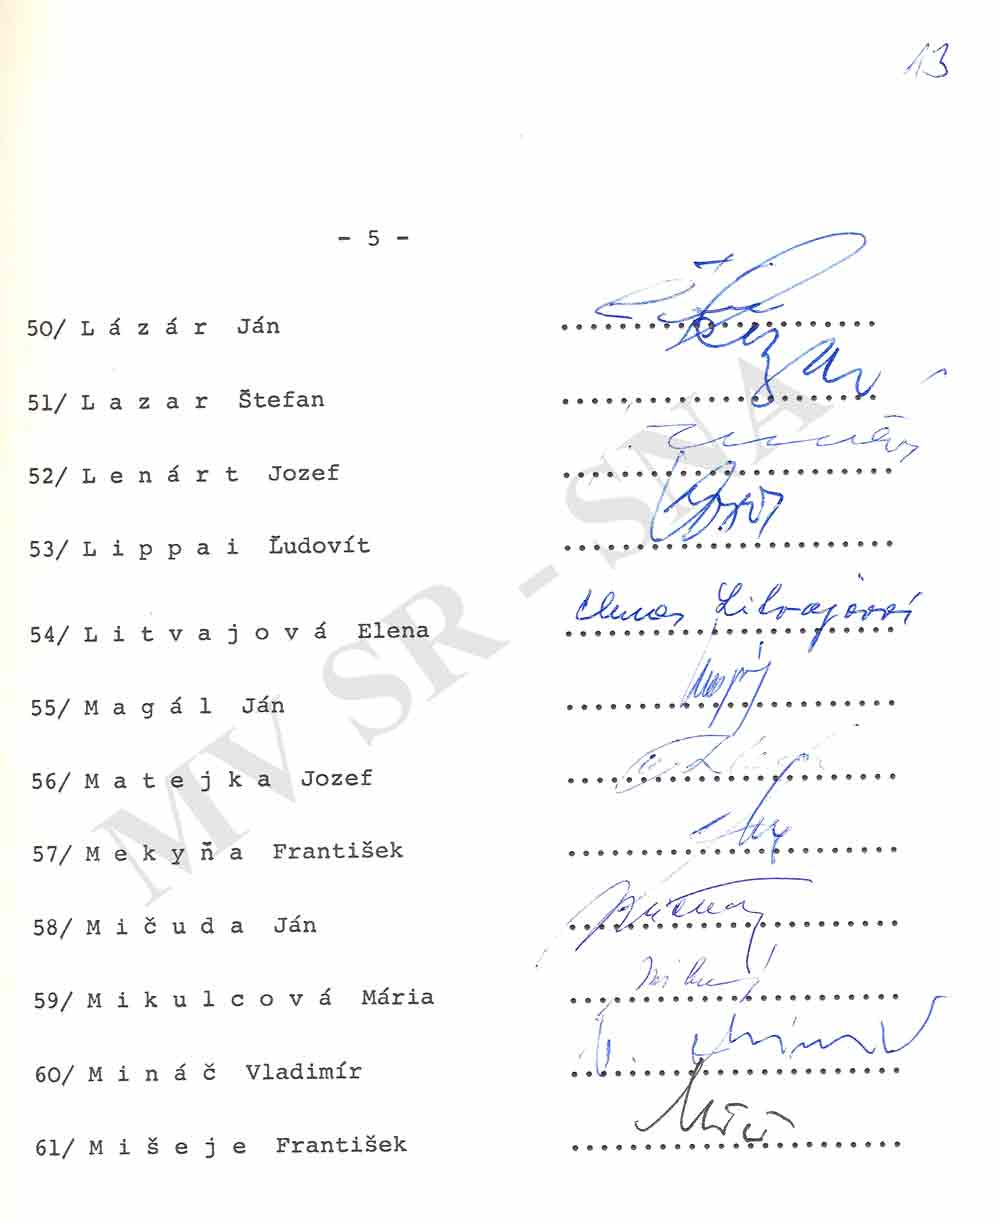 13
- 5 -
50/ L á z á r Ján ....................
51/ L a z a r Štefan ....................
52/ L e n á r t Jozef .....................
53/ L i p p a i Ľudovít .....................
Elena Litvajová
54/ L i t v a j o v á Elena .....................
55/ M a g á l Ján .....................
56/ M a t e j k a Jozef .....................
57/ M e k y ň a František .....................
58/ M i č u d a Ján .....................
59/ M i k u l c o v á Mária .....................
60/ M i n á č Vladimír .....................
61/ M i š e j e František .....................
MV SR - SNA